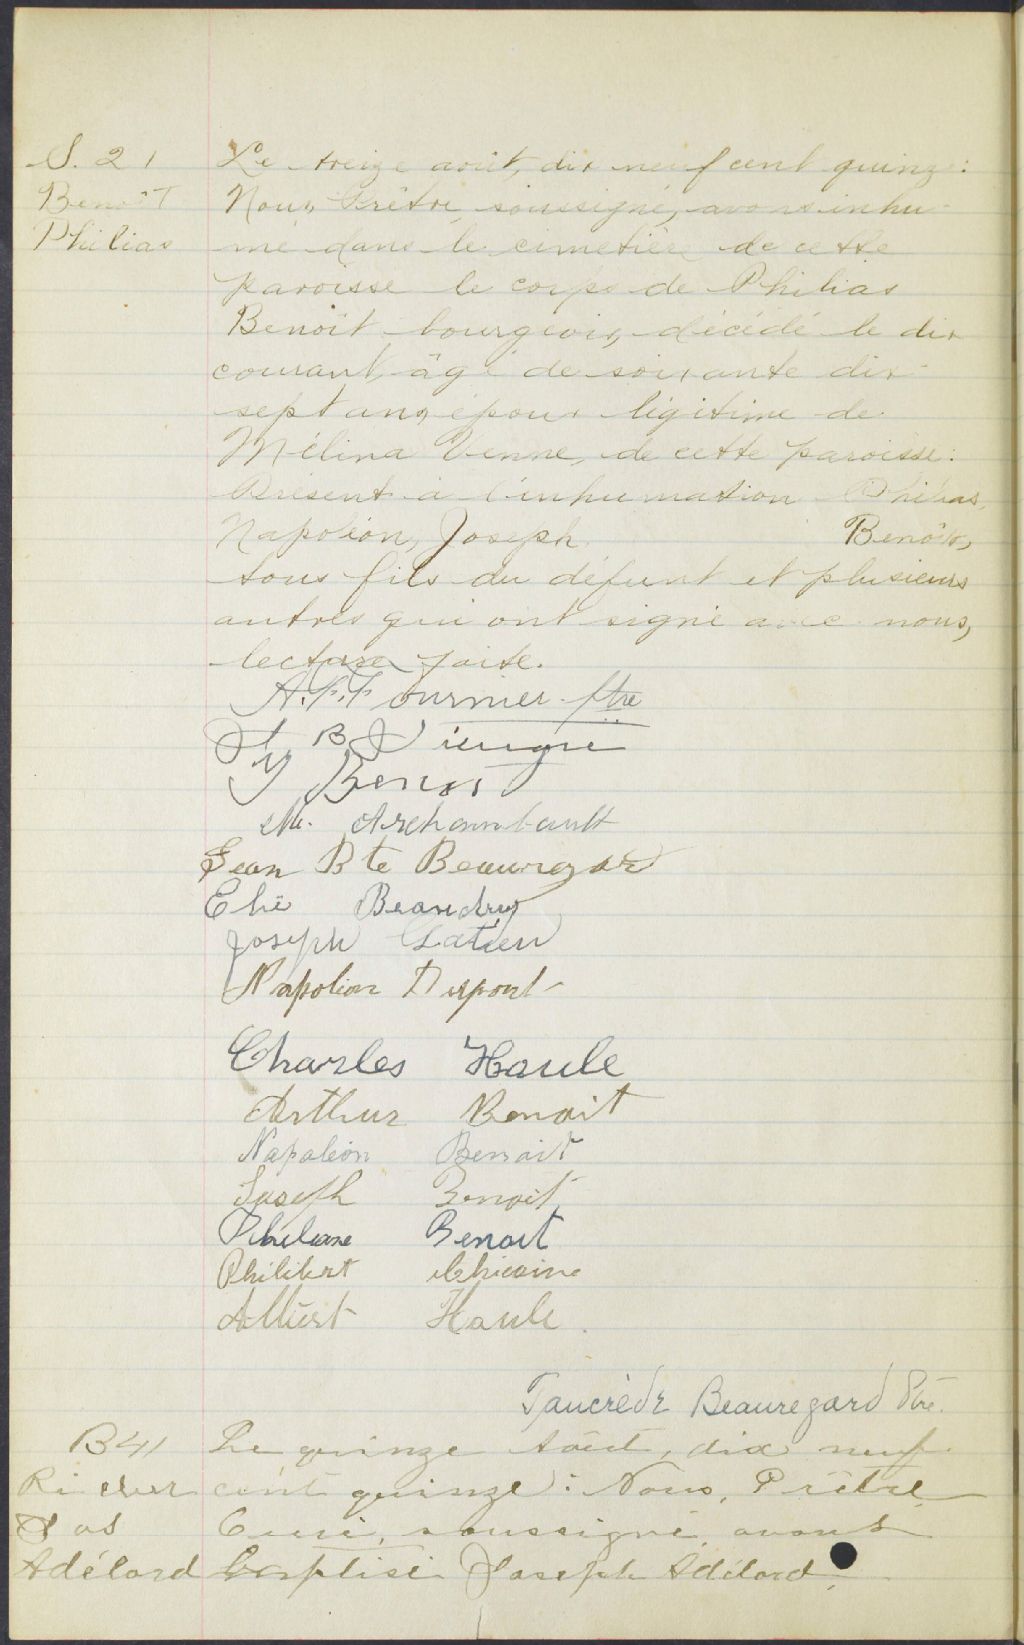 S. 21
Benoît
Philias
Le treize août, dix neuf cent quinze:
Nous, Prêtre soussigné, avons inhu
mé dans le cimetière de cette
paroisse le corps de Philias
Benoît bourgeois, décédé le dix
courant, âgé de soixante dix
sept ans, époux légitime de
Mélina Venne, de cette paroisse:
Présent à l'inhumation Philias,
Napoléon, Joseph Benoît,
tous fils du défunt et plusieurs
autres qui ont signé avec nous,
lecture faite.
A. F. Fournier ptre
J B
Benoi
Archambault
Jean Bte Beauregard
Elie Beaudry
Joseph
Napoleon
Charles Haule
Arthur Benoit
Napoléon Benoit
Joseph Benoit
Benoit
Philibert Chicoine
Albert Haule
Tancrède Beauregard Ptre.
B 41
Richer
Jos
Adélard
Le quinze Août, dix neuf
cent quinze: Nous, Prêtre
Curé, soussigné avons
baptisé Joseph Adélard,